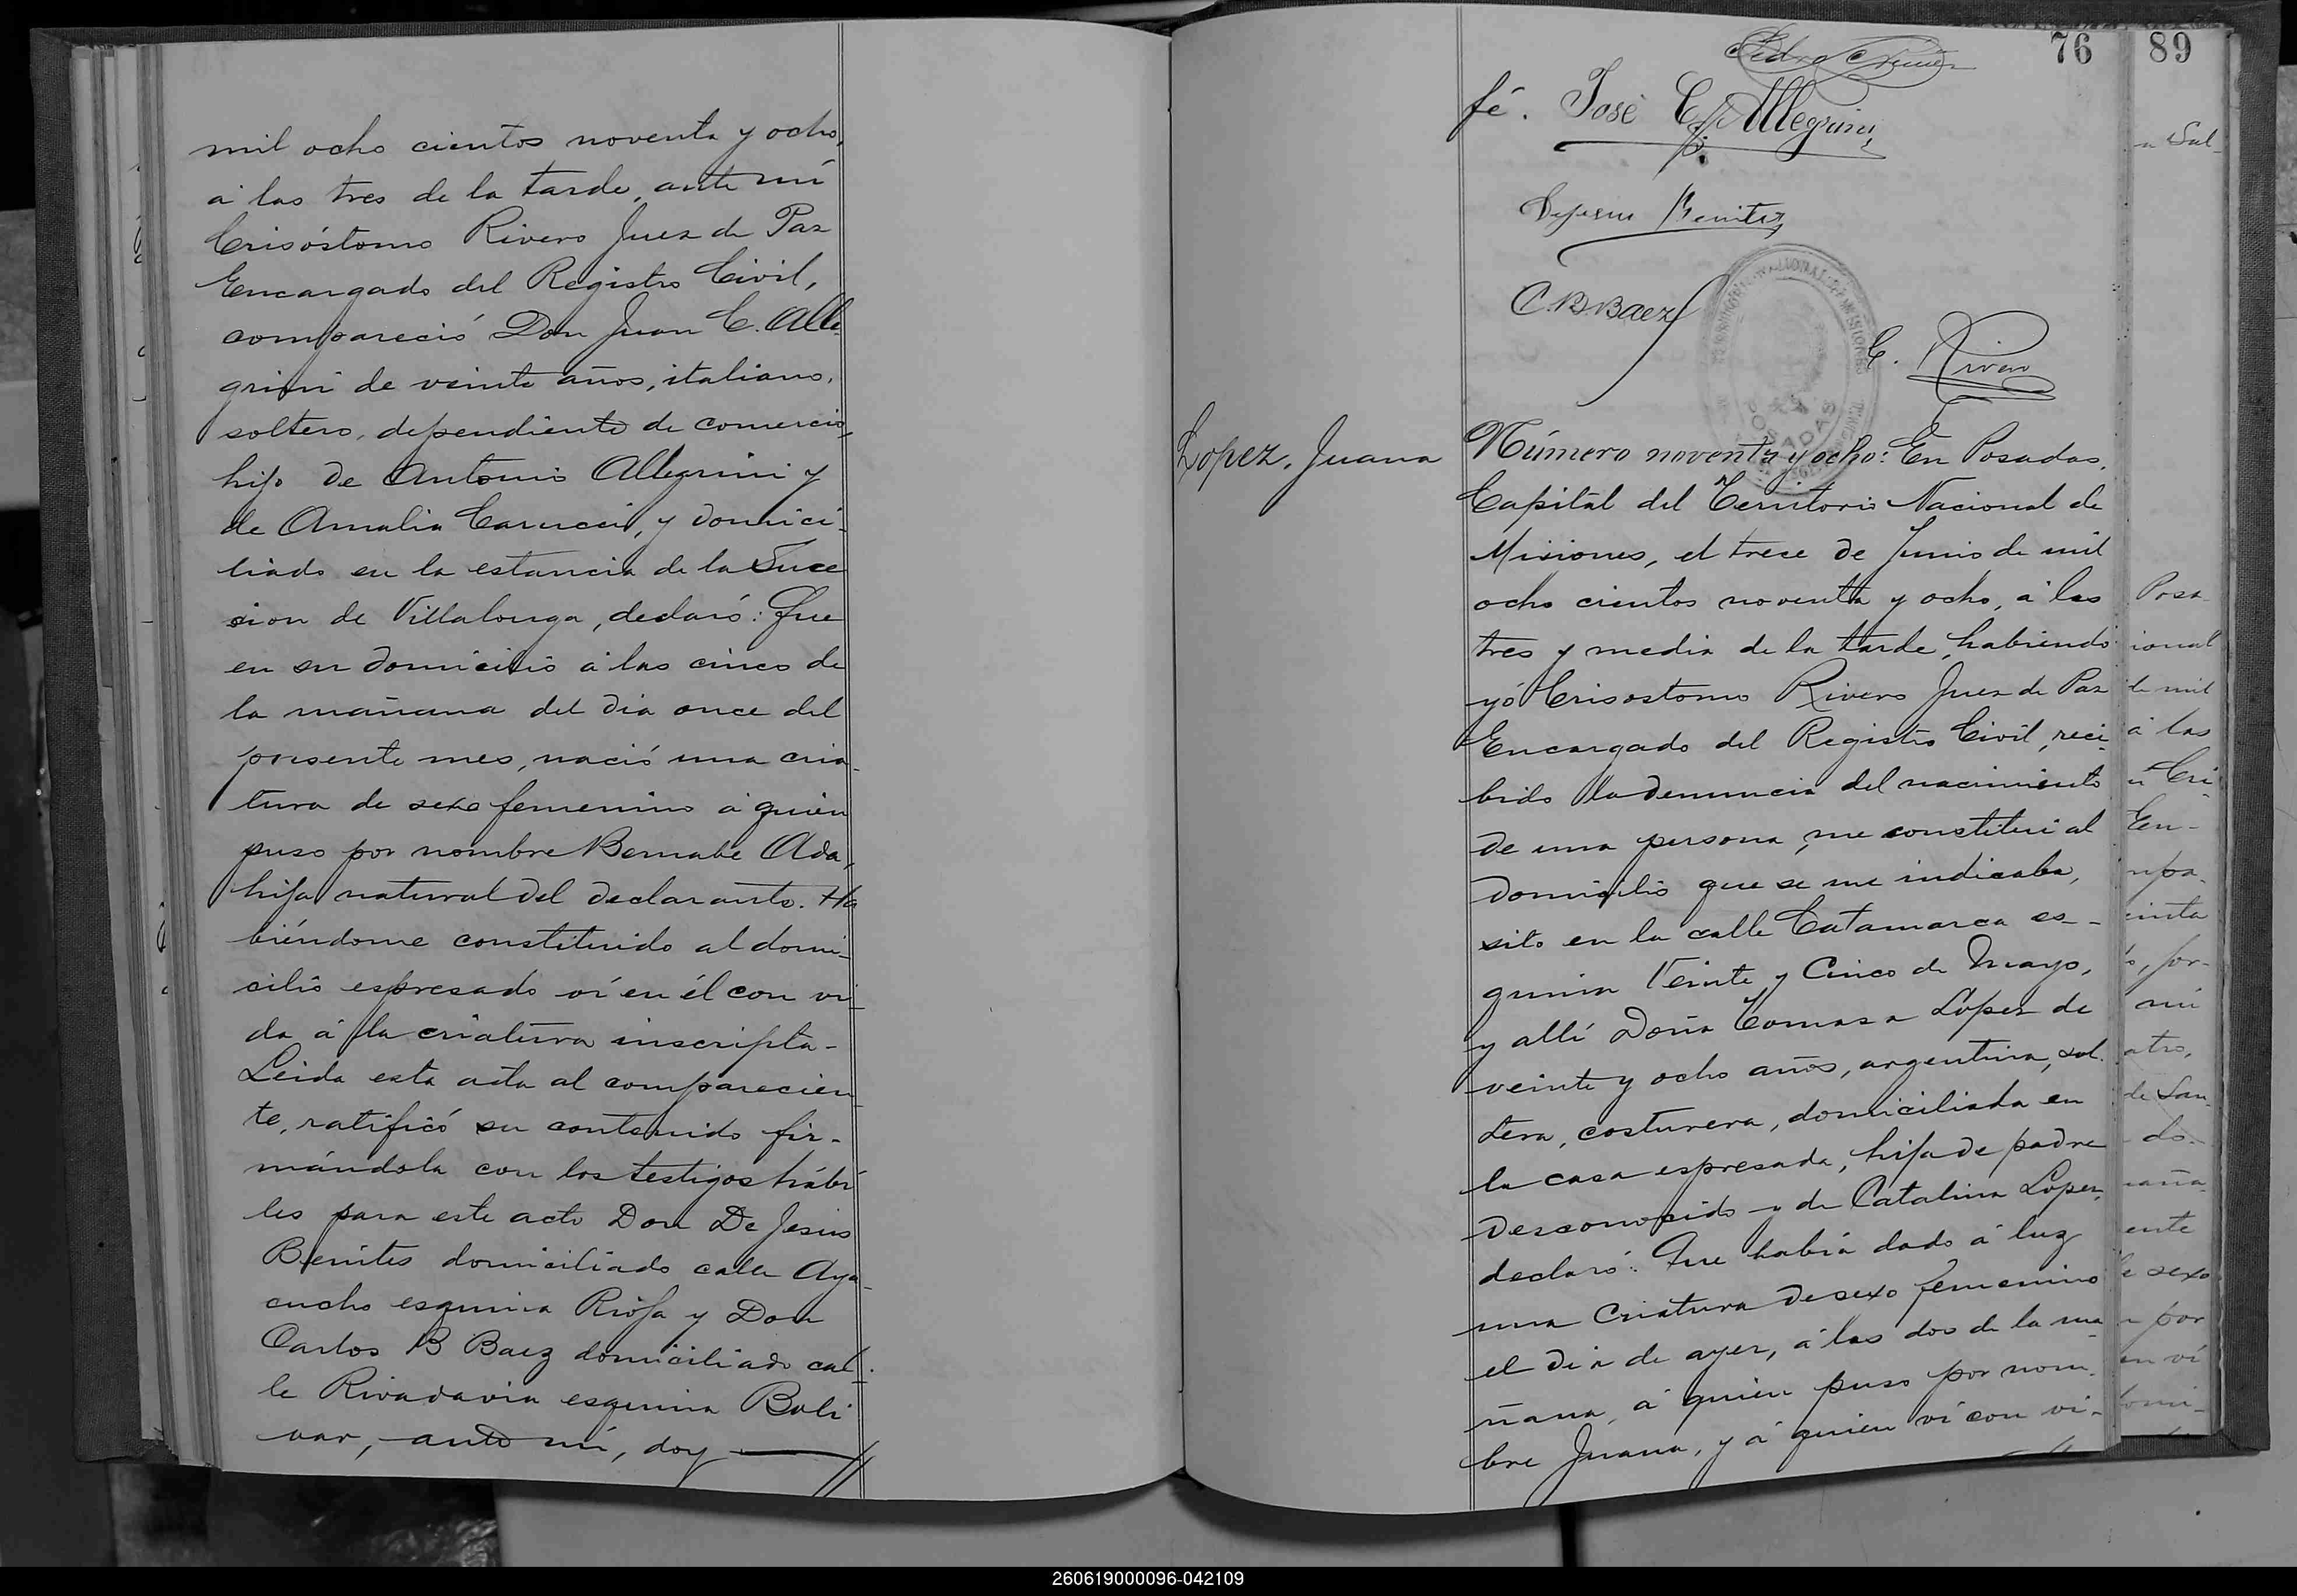 mil ocho cientos noventa y ocho,
á las tres de la tarde, ante mí
Crisóstomo Rivero Juez de Paz
Encargado del Registro Civil,
compareció Don Juan C. Alle-
grini de veinte años, italiano,
soltero, dependiente de comercio,
hijo de Antonio Allegrini y
de Amalia Carucci, y domici-
liado en la estancia de la Suce
sion de Villalonga, declaró: Que
en su domicilio á las cinco de
la mañana del dia once del
presente mes, nació una cria-
tura de sexo femenino á quien
puso por nombre Bernabe Ada,
hija natural del declarante. Ha
biéndome constituido al domi-
cilio espresado ví en él con vi-
da á la criatura inscripta-
Leida esta acta al comparecien-
te, ratificó su contenido fir-
mándola con los testigos hábi
les para este acto Don De Jesus
Benites domiciliado calle Aya-
cucho esquina Rioja y Don
Carlos B Baez domiciliado cal-
le Rivadavia esquina Boli
var, ante mí, doy
76
89
fé. José C. Allegrini
Dejesus Benitez
C.B. Baez
C. Rivero
POSADAS
Lopez, Juana
Número noventa y ocho: En Posadas,
Capital del Territorio Nacional de
Misiones, el trece de Junio de mil
ocho cientos noventa y ocho, á las
tres y media de la tarde, habiendo
yó Crisostomo Rivero Juez de Paz
Encargado del Registro Civil, reci-
bido la denuncia del nacimiento
de una persona, me constitui al
domicilio que se me indicaba,
sito en la calle Catamarca es-
quina Veinte y Cinco de Mayo,
y allí Doña Tomasa Lopez de
veinte y ocho años, argentina, sol-
tera, costurera, domiciliada en
la casa espresada, hija de padre
desconocido y de Catalina Lopez,
declaró: Que habia dado á luz
una criatura de sexo femenino
el dia de ayer, á las dos de la ma-
ñana, á quien puso por nom-
bre Juana, y á quien ví con vi-
260619000096-042109